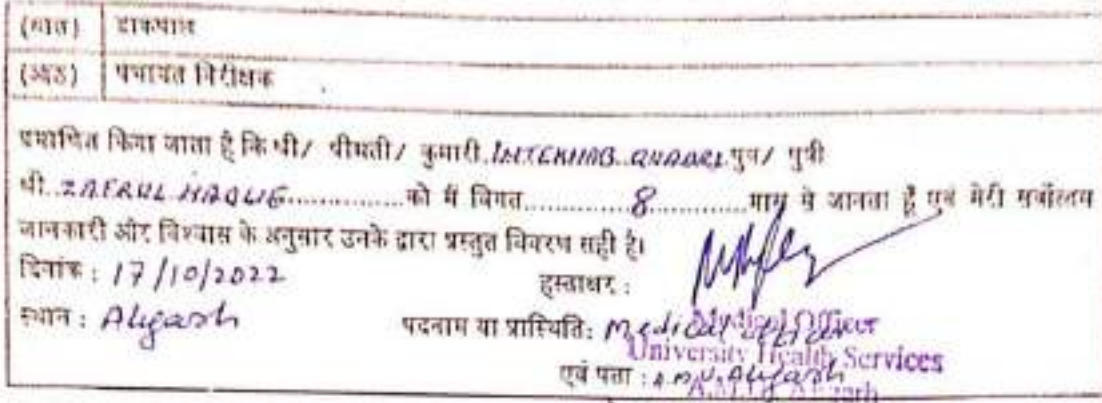 (सात) डाकपाल
(आठ) पंचायत निरीक्षक
प्रमाणित किया जाता है कि श्री/ श्रीमती/ कुमारी.INTEKHAB..QUADRI पुत्र/ पुत्री
श्री..ZAFRUL HAQUE...............को मैं विगत...............8...............माह से जानता हूँ एवं मेरी सर्वोत्तम
जानकारी और विश्वास के अनुसार उनके द्वारा प्रस्तुत विवरण सही है।
दिनांक : 17/10/2022 हस्ताक्षर :
स्थान : Aligarh पदनाम या प्रास्थिति: Medical Officer
Medical Officer
University Health Services
एवं पता : A.M.U. Aligarh
A.M.U. Aligarh